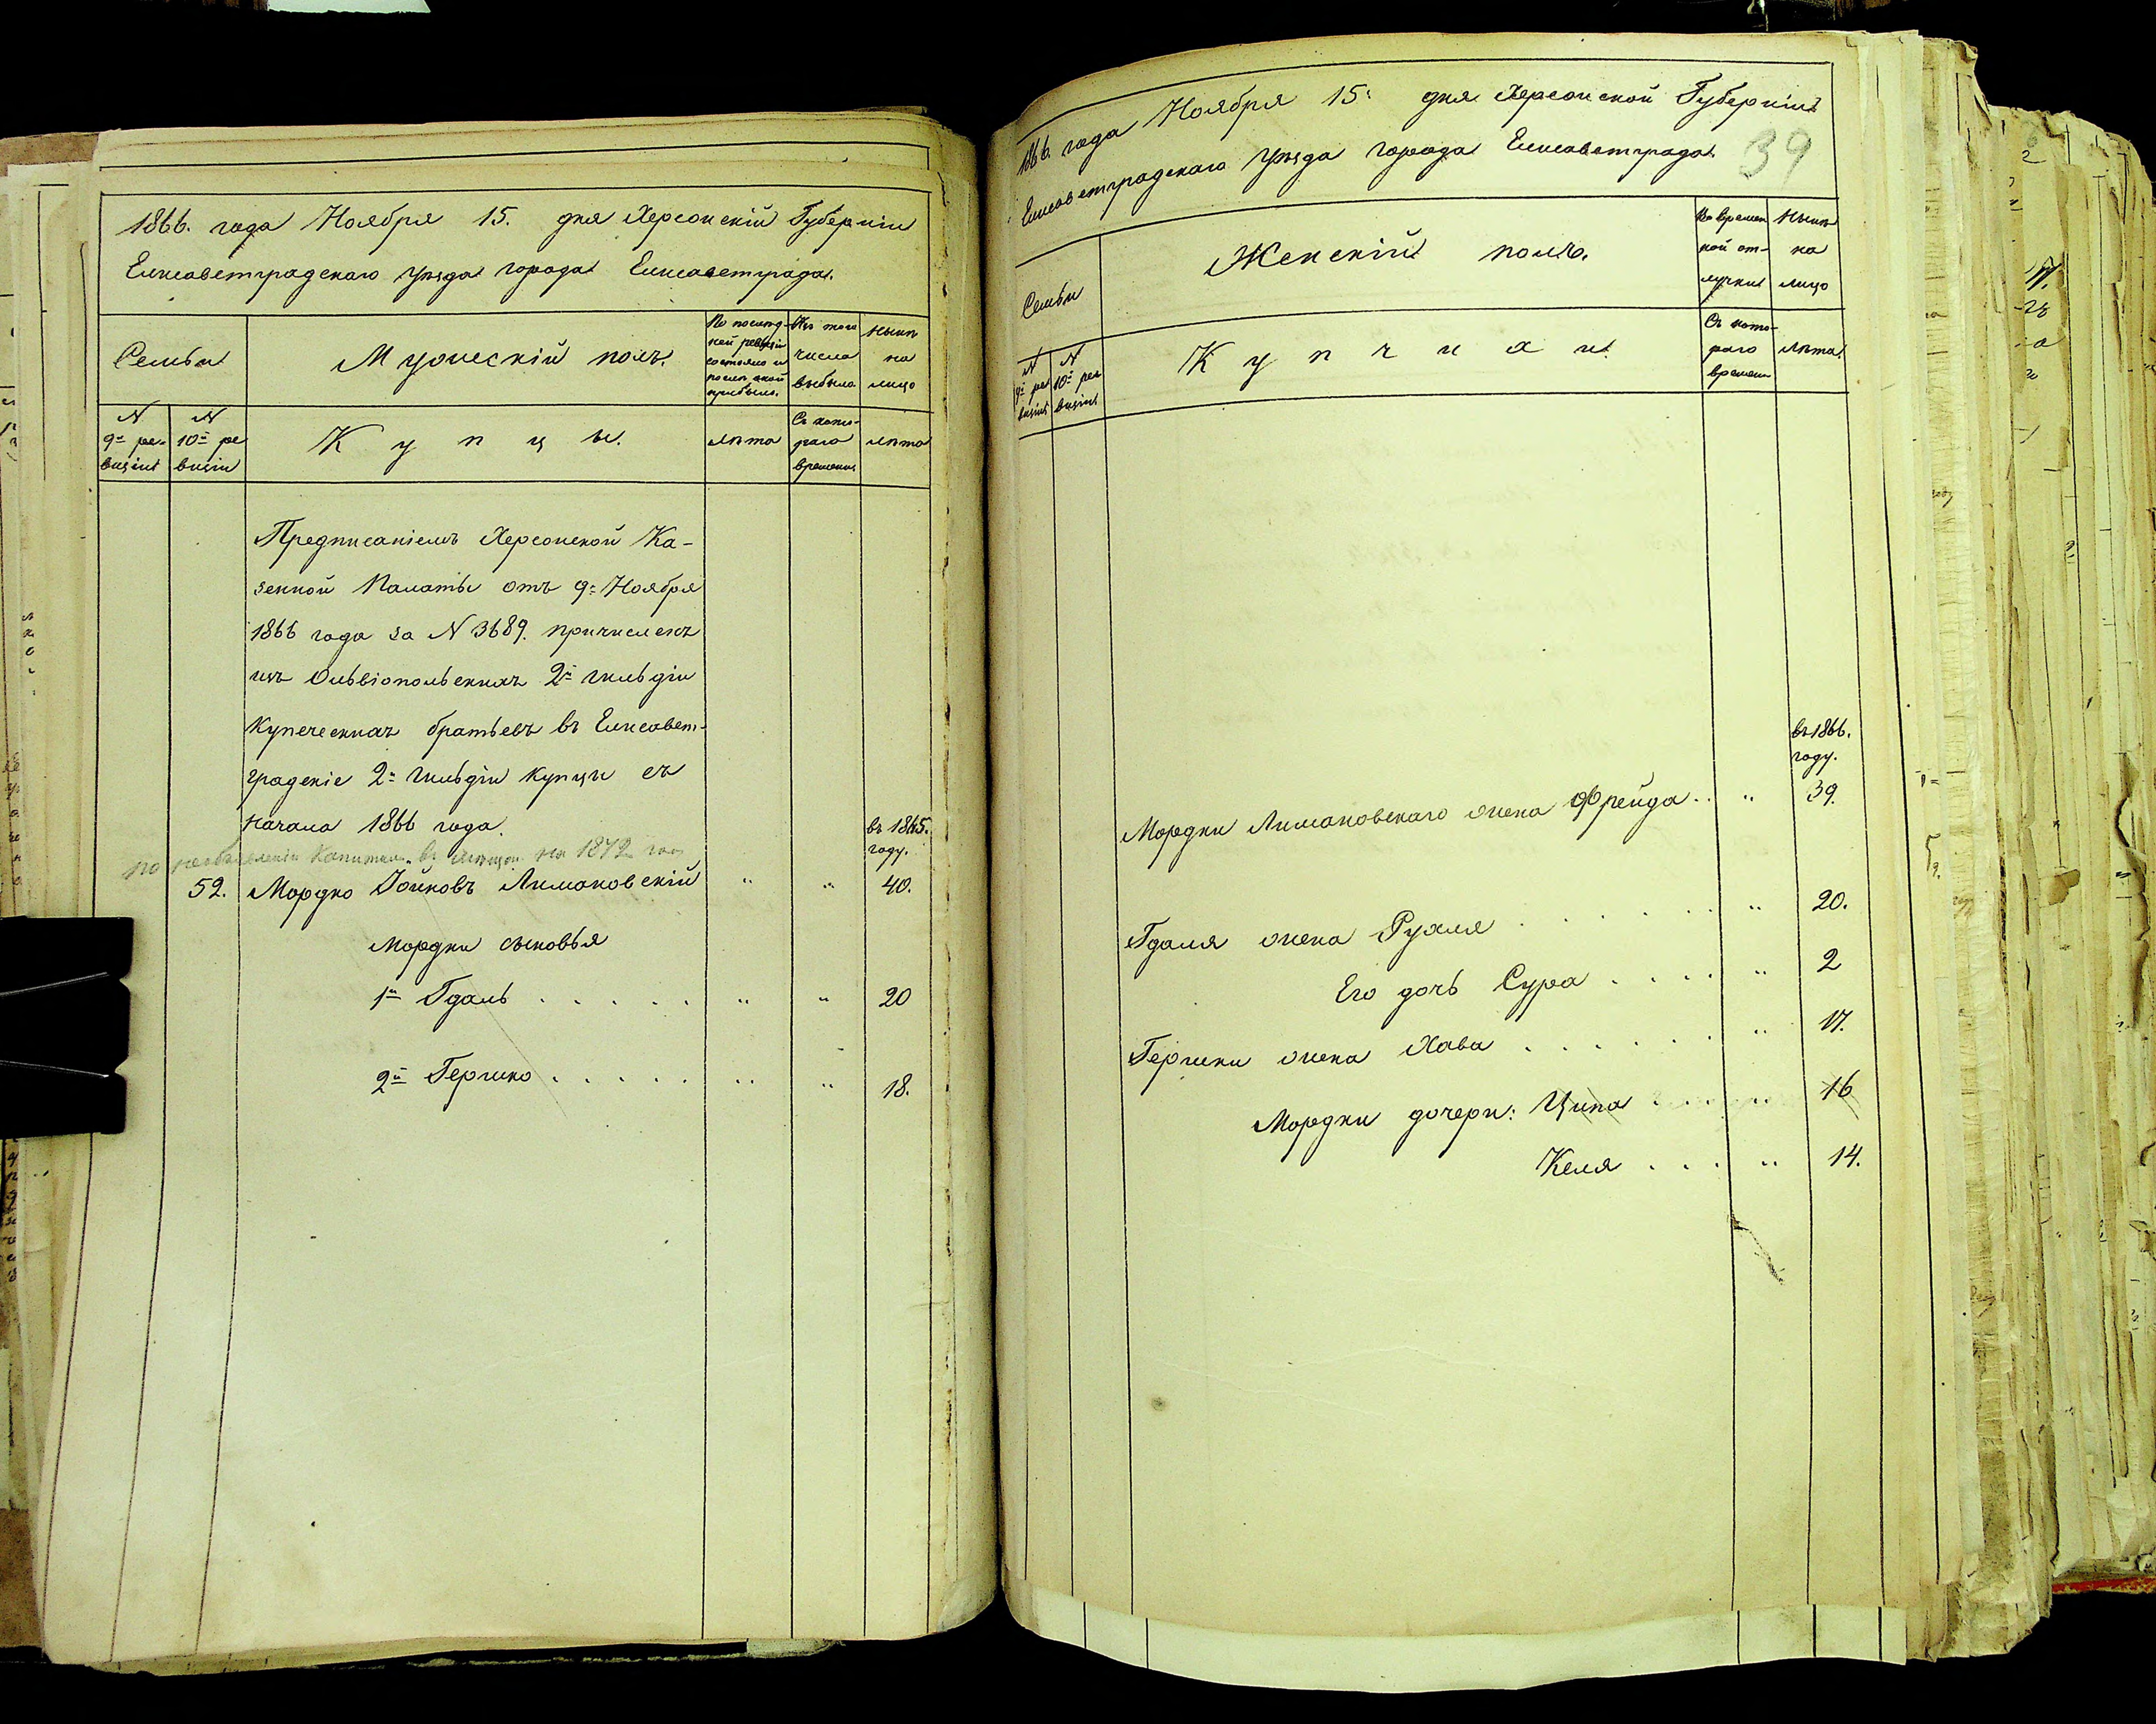 1866. года Ноября 15. дня Херсонскій Губерніи
Елисаветградскаго уѣзда города Елисаветграда.
Семьи
Мужескій полъ.
По послѣд-
ней ревизіи
состояло и
послѣ оной
прибыло.
Изъ того
числа
выбыло
Нынѣ
на
лицо
N
9й ре-
визіи
N
10й ре
визіи
Купцы.
лѣта
Съ кото-
раго
времени
лѣта
Предписаніемъ Херсонской Ка-
зенной Палаты отъ 9: Ноября
1866 года за N 3689. причисленъ
изъ Ольвіопольскихъ 2й гильдіи
купеческихъ братьевъ въ Елисавет-
градскіе 2й гильдіи купцы съ
начала 1866 года.
въ 1865.
году.
по необъявленіи капитала въ мѣщан. на 1872 год
52. Мордко Іойновъ Лимановскій " " 40.
Мордки сыновья
1й Гдаль . . . . . " " 20
2й Гершко . . . . . " " 18.
1866. года Ноября 15: дня Херсонской Губерніи
Елисаветградскаго уѣзда города Елисаветграда.
39
Семьи
Женскій полъ.
Во времен
ной от-
лучки
Нынѣ
на
лицо
N
9й ре
визіи
N
10й ре
визіи
Купчихи.
Съ кото-
раго
времени
лѣта
въ 1866.
году.
Мордки Лимановскаго жена Фрейда . . " 39.
Гдаля жена Рухля . . . . . . " 20.
Его дочь Сура . . . . " 2
Гершки жена Хава . . . . . . " 17.
Мордки дочери: Ципа " 16
Келя . . . " 14.